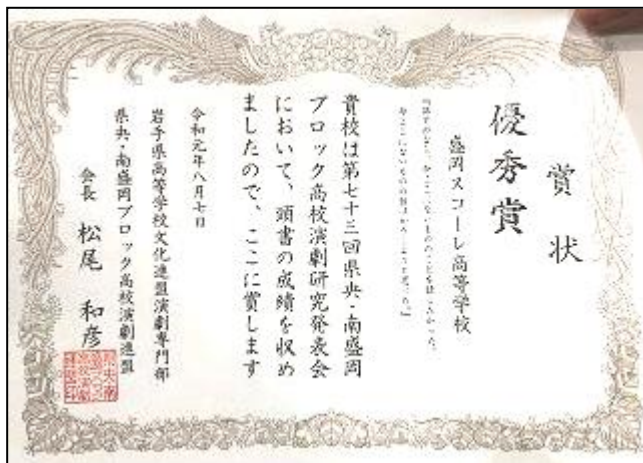 賞状
優秀賞
盛岡スコーレ高等学校
貴校は第七十三回県央・南盛岡
ブロック高校演劇研究発表会
において、頭書の成績を収め
ましたので、ここに賞します
令和元年八月七日
岩手県高等学校文化連盟演劇専門部
県央・南盛岡ブロック高校演劇連盟
会長 松尾 和彦